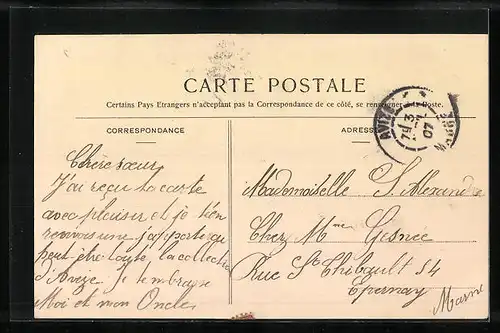 CARTE POSTALE
Certains Pays Etrangers n'acceptant pas la Correspondance de ce côté, se renseigner à la Poste.
CORRESPONDANCE
ADRESSE
AVIZE
3
07
MARNE
Chère sœur
J'ai reçu ta carte
avec plaisir et je t'en
renvois une j'apporterai
peut être toute la collection
d'Avize Je tembrasse
Moi et mon Oncle
Mademoiselle S. Alexandre
Chez Mme Gesnée
Rue St Thibault 54
Epernay
Marne